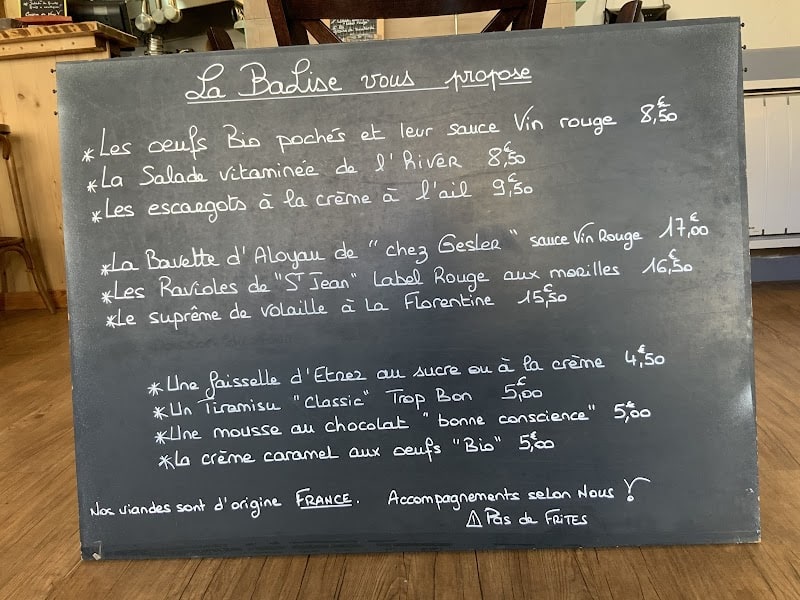 La Balise vous propose
*Les oeufs Bio pochés et leur sauce Vin rouge 8,50€
*La Salade vitaminée de l'hiver 8,50€
*Les escargots à la crème à l'ail 9,50€
*La Bavette d'Aloyau de "chez Gesler" sauce Vin Rouge 17,00€
*Les Ravioles de "St Jean" Label Rouge aux morilles 16,50€
*Le suprême de volaille à La Florentine 15,50€
*Une faisselle d'Etrez au sucre ou à la crème 4,50€
*Un Tiramisu "Classic" Trop Bon 5,00€
*Une mousse au chocolat "bonne conscience" 5,00€
*La crème caramel aux oeufs "Bio" 5,00€
Nos viandes sont d'origine FRANCE. Accompagnements selon Nous !
⚠ Pas de FRITES